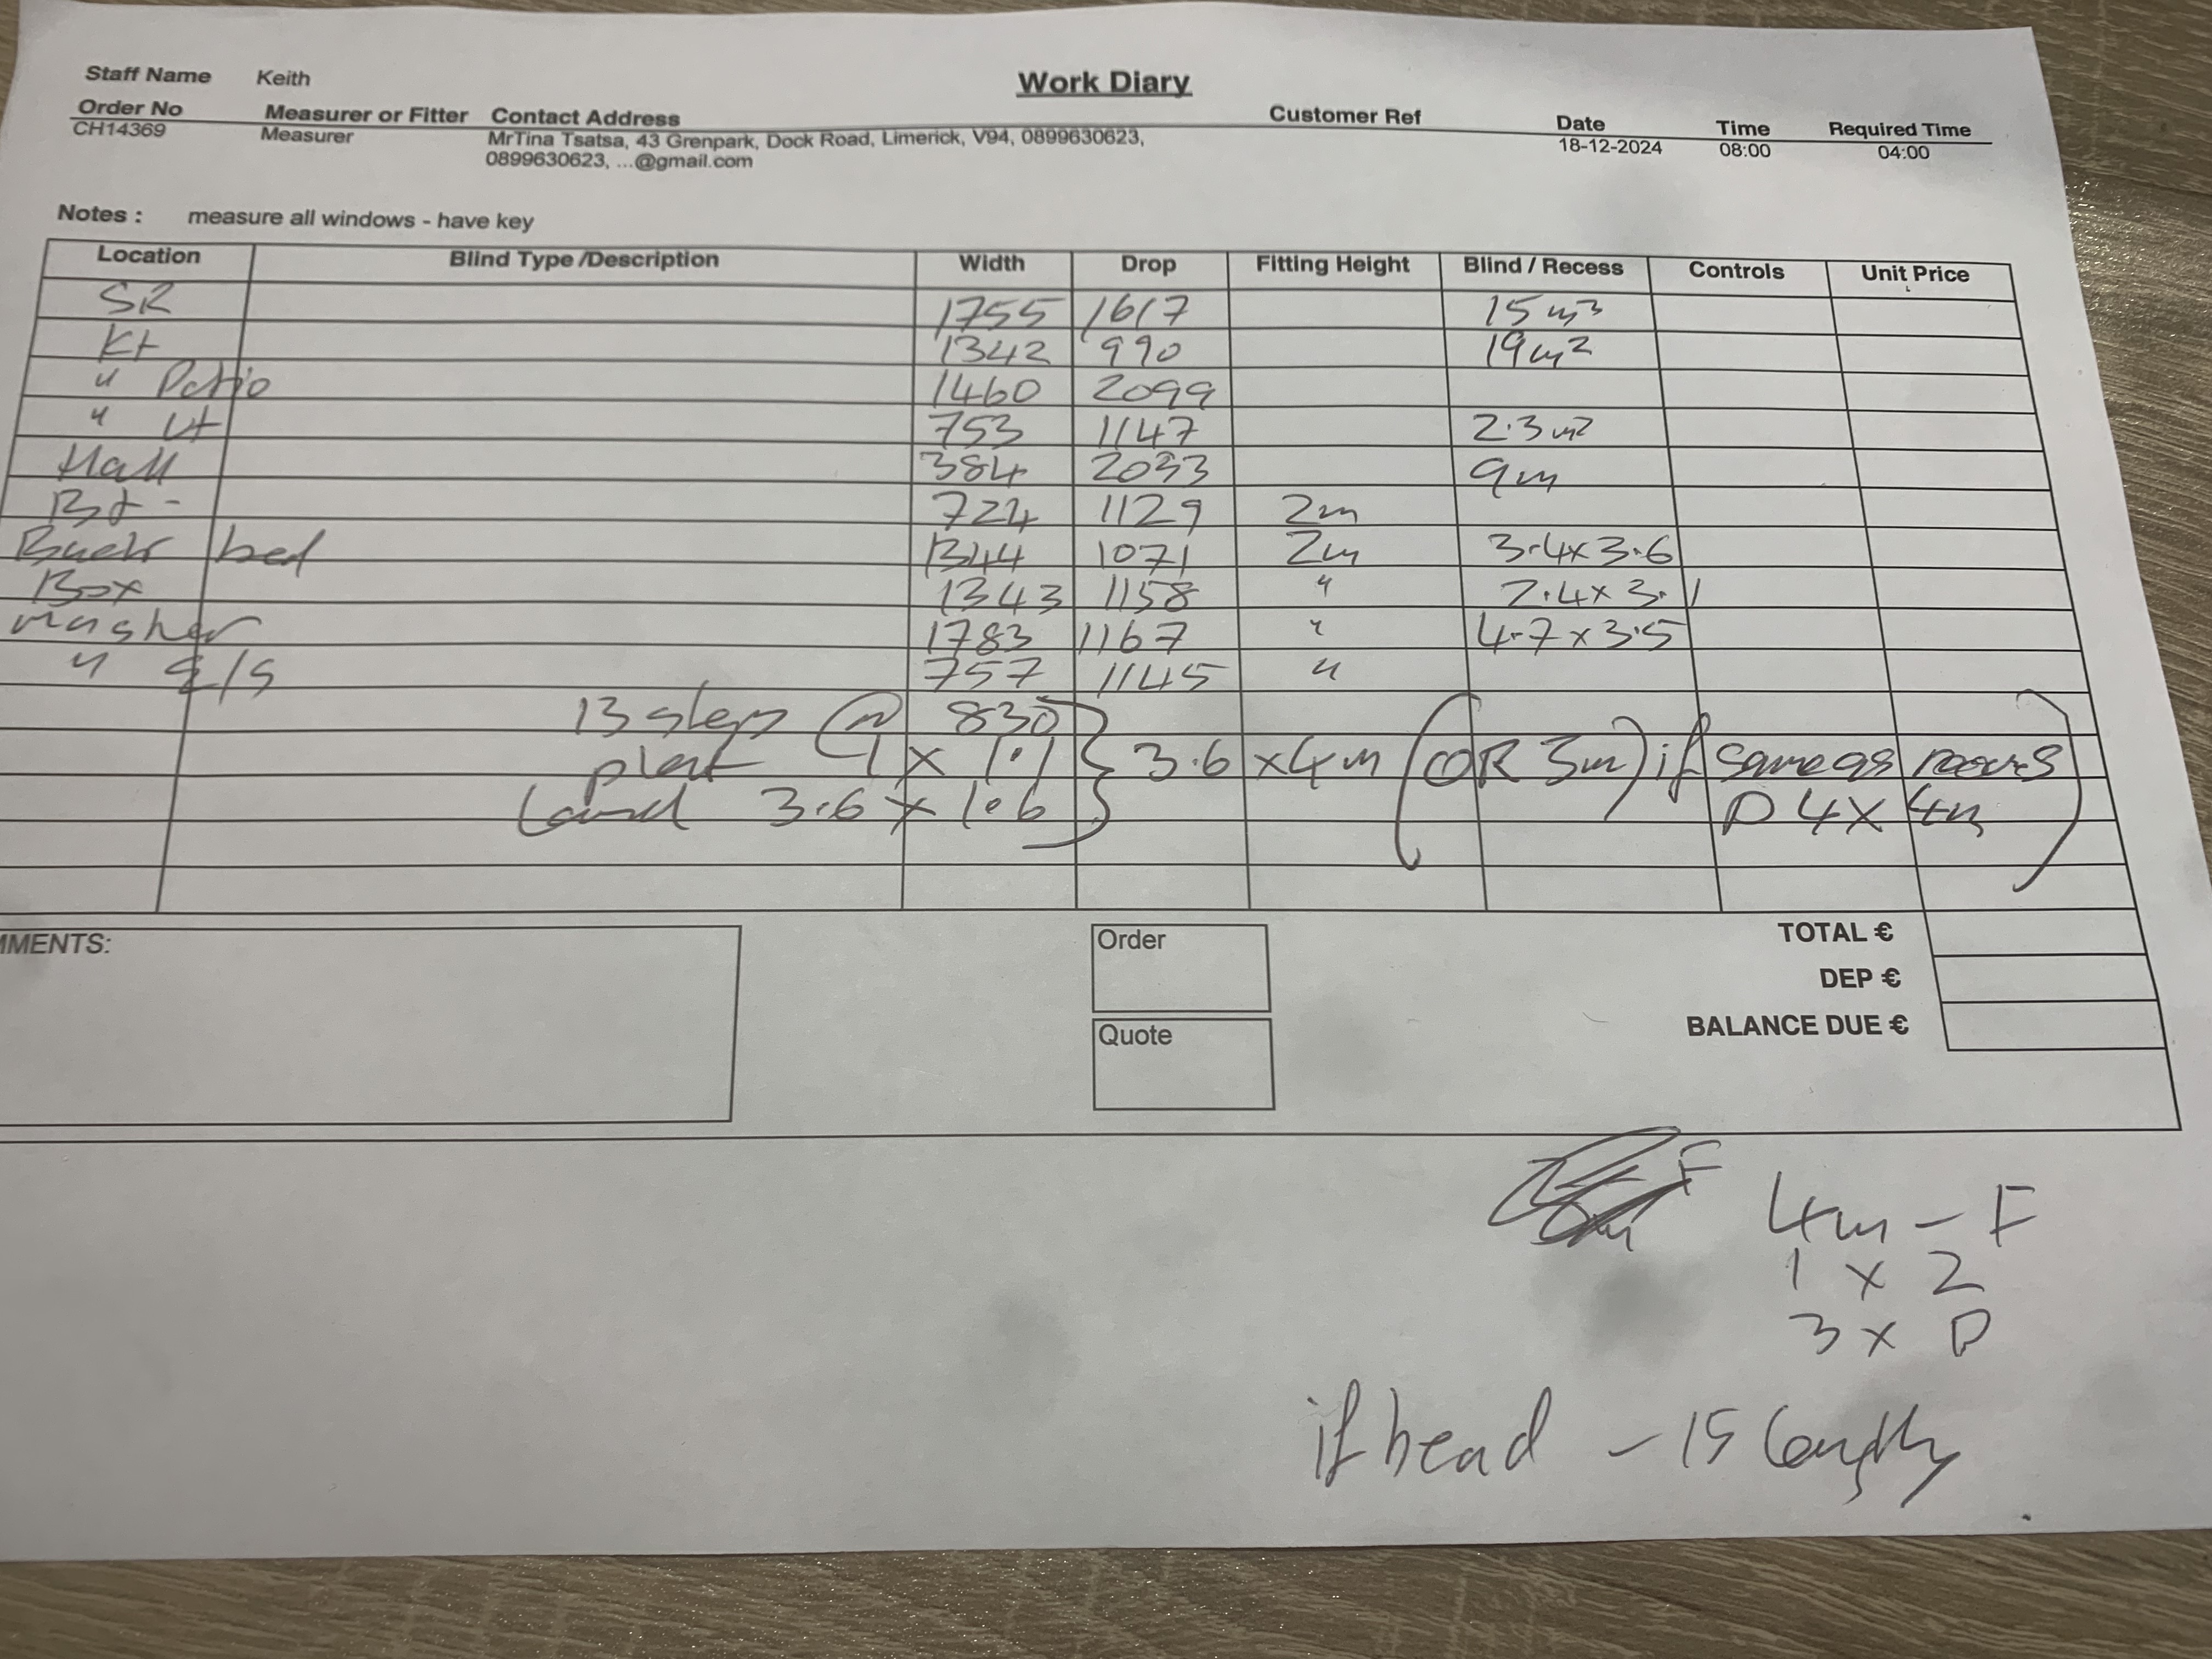 Work Diary
Staff Name Keith
Order No Measurer or Fitter Contact Address Customer Ref Date Time Required Time
CH14369 Measurer MrTina Tsatsa, 43 Grenpark, Dock Road, Limerick, V94, 0899630623, 18-12-2024 08:00 04:00
0899630623, ...@gmail.com
Notes : measure all windows - have key
Location Blind Type /Description Width Drop Fitting Height Blind / Recess Controls Unit Price
SR 1755 1617 15 m²
Kt 1342 990 19 m²
" Patio 1460 2099
" Ut 753 1147 2.3 m²
Hall 384 2033 9m
Bt - 724 1129 2m
Back bed 1344 1071 2m 3.4 x 3.6
Box 1343 1158 " 2.4 x 3.1
master 1783 1167 " 4.7 x 3.5
" /S 757 1145 "
13 steps @ 830
plat 1 x 1.1 } 3.6 x 4m (OR 5m) if same as rooms
Land 3.6 x 1.6 D 4 x 4m
MMENTS:
Order
Quote
TOTAL €
DEP €
BALANCE DUE €
F 4m - F
1 x 2
3 x D
if bead - 15 lengths